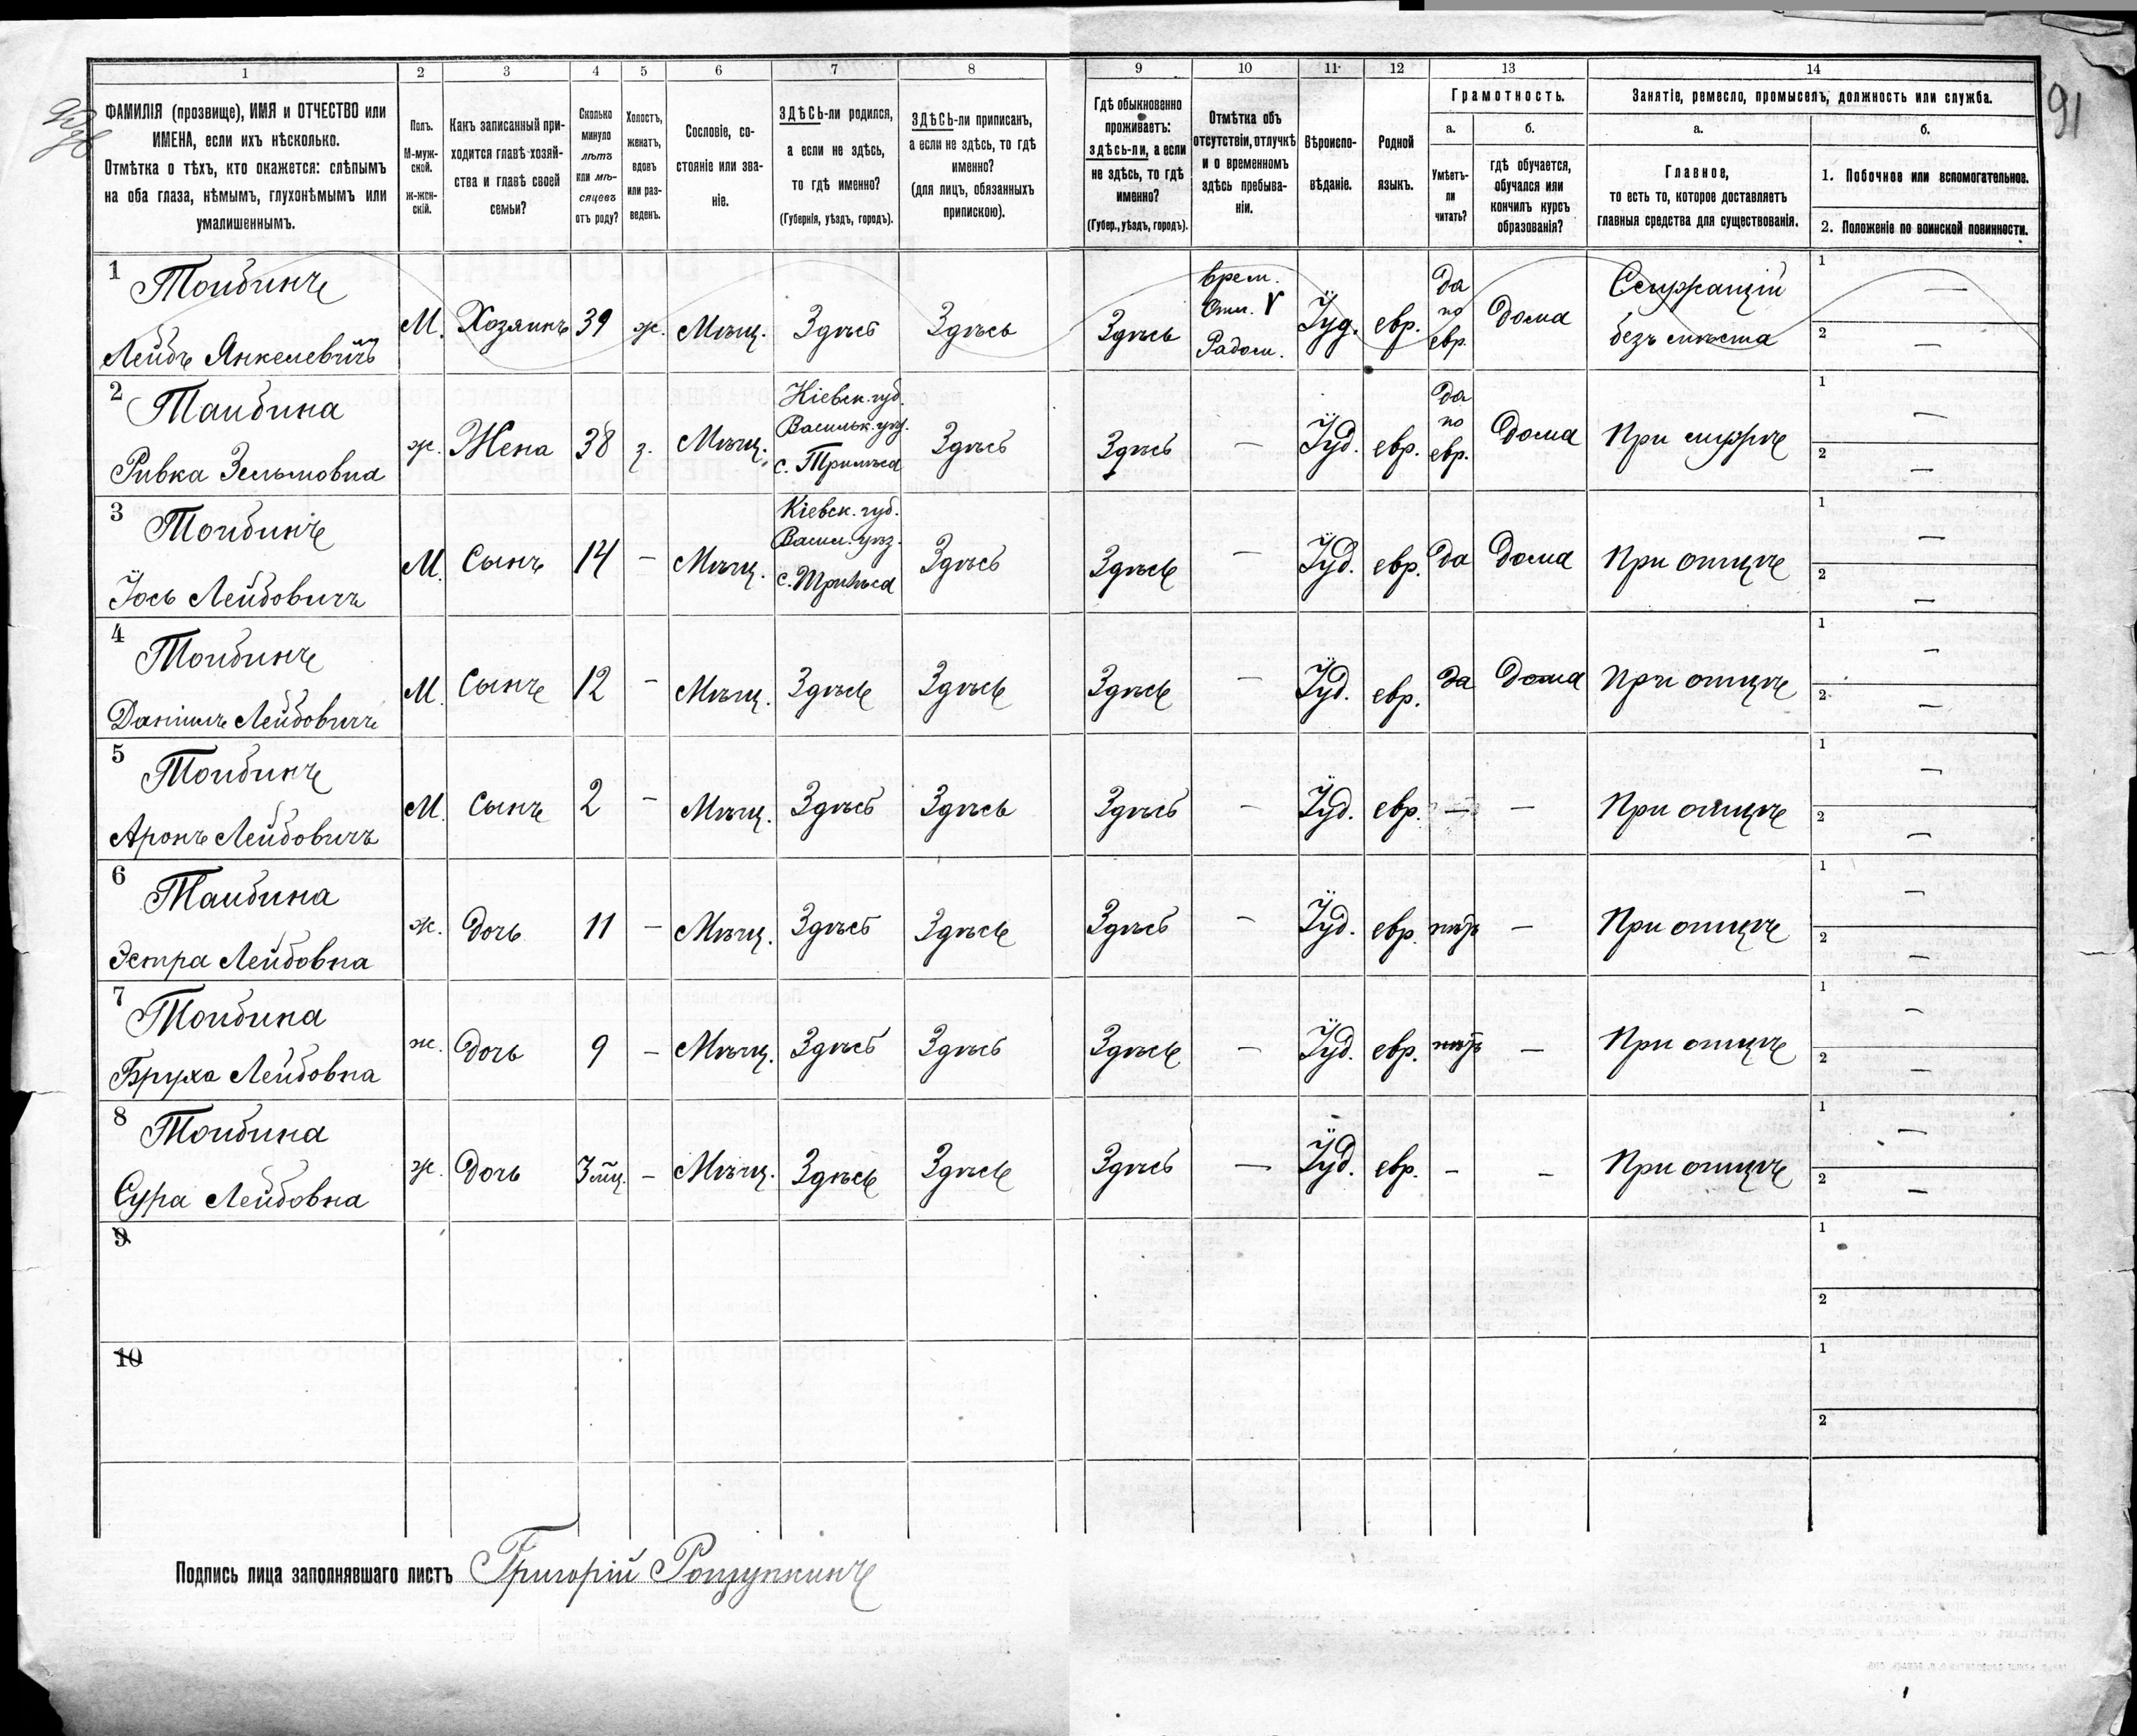 1 2 3 4 5 6 7 8 9 10 11 12 13 14
ФАМИЛІЯ (прозвище), ИМЯ и ОТЧЕСТВО или
ИМЕНА, если ихъ нѣсколько.
Отмѣтка о тѣхъ, кто окажется: слѣпымъ
на оба глаза, нѣмымъ, глухонѣмымъ или
умалишеннымъ.
Полъ.
М-муж-
ской.
Ж-жен-
скій.
Какъ записанный при-
ходится главѣ хозяй-
ства и главѣ своей
семьи?
Сколько
минуло
лѣтъ
или мѣ-
сяцевъ
отъ роду?
Холостъ,
женатъ,
вдовъ
или раз-
веденъ.
Сословіе, со-
стояніе или зва-
ніе.
ЗДѢСЬ-ли родился,
а если не здѣсь,
то гдѣ именно?
(Губернія, уѣздъ, городъ).
ЗДѢСЬ-ли приписанъ,
а если не здѣсь, то гдѣ
именно?
(для лицъ, обязанныхъ
припискою).
Гдѣ обыкновенно
проживаетъ:
здѣсь-ли, а если
не здѣсь, то гдѣ
именно?
(Губер., уѣздъ, городъ).
Отмѣтка объ
отсутствіи, отлучкѣ
и о временномъ
здѣсь пребыва-
ніи.
Вѣроиспо-
вѣданіе.
Родной
языкъ.
Грамотность.
а.
Умѣетъ-
ли
читать?
б.
гдѣ обучается,
обучался или
кончилъ курсъ
образованія?
Занятіе, ремесло, промыселъ, должность или служба.
а.
Главное,
то есть то, которое доставляетъ
главныя средства для существованія.
б.
1. Побочное или вспомогательное.
2. Положеніе по воинской повинности.
91
1 Тоибинъ
Лейбъ Янкелевичъ
М. Хозяинъ 39 ж. Мѣщ. Здѣсь Здѣсь Здѣсь
врем.
Отл. V
Радом.
Іуд. евр.
да
по
евр.
дома
безъ мѣста
1 —
2 —
2 Таибина
Ривка Зельмовна
ж. Жена 38 з. Мѣщ.
Кіевск. губ.
Васильк. уѣз.
Здѣсь Здѣсь — Іуд. евр.
да
по
евр.
дома При мужѣ
1 —
2 —
3 Тоибинъ
Іось Лейбовичъ
М. Сынъ 14 — Мѣщ.
Кіевск. губ.
Васил. уѣз.
Здѣсь Здѣсь — Іуд. евр. да дома При отцѣ
1 —
2 —
4 Тоибинъ
Даніилъ Лейбовичъ
М. Сынъ 12 — Мѣщ. Здѣсь Здѣсь Здѣсь — Іуд. евр. да дома При отцѣ
1 —
2 —
5 Тоибинъ
Аронъ Лейбовичъ
М. Сынъ 2 — Мѣщ. Здѣсь Здѣсь Здѣсь — Іуд. евр. — — При отцѣ
1 —
2 —
6 Таибина
Эстра Лейбовна
ж. Дочь 11 — Мѣщ. Здѣсь Здѣсь Здѣсь — Іуд. евр. нѣтъ — При отцѣ
1 —
2 —
7 Тоибина
Бруха Лейбовна
ж. Дочь 9 — Мѣщ. Здѣсь Здѣсь Здѣсь — Іуд. евр. нѣтъ — При отцѣ
1 —
2 —
8 Тоибина
Сура Лейбовна
ж. Дочь 3 мѣц. — Мѣщ. Здѣсь Здѣсь Здѣсь — Іуд. евр. — — При отцѣ
1 —
2 —
9
1
2
10
1
2
Подпись лица заполнявшаго листъ Григорій Рощупкинъ